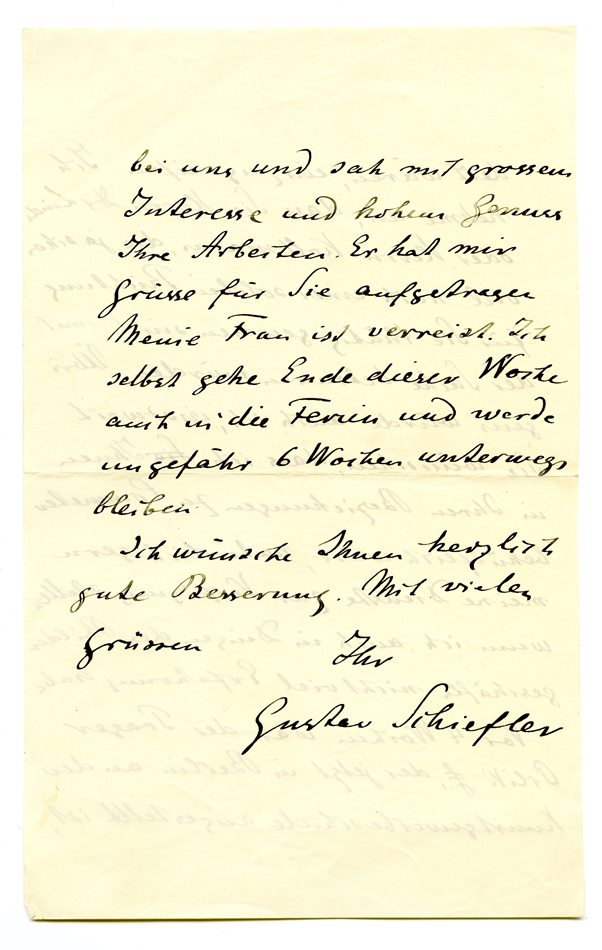 bei uns und sah mit grossem
Interesse und hohem Genuss
Ihre Arbeiten. Er hat mir
Grüsse für Sie aufgetragen
Meine Frau ist verreist. Ich
selbst gehe Ende dieser Woche
auch in die Ferien und werde
ungefähr 6 Wochen unterwegs
bleiben
Ich wünsche Ihnen herzlich
gute Besserung. Mit vielen
Grüssen Ihr
Gustav Schiefler